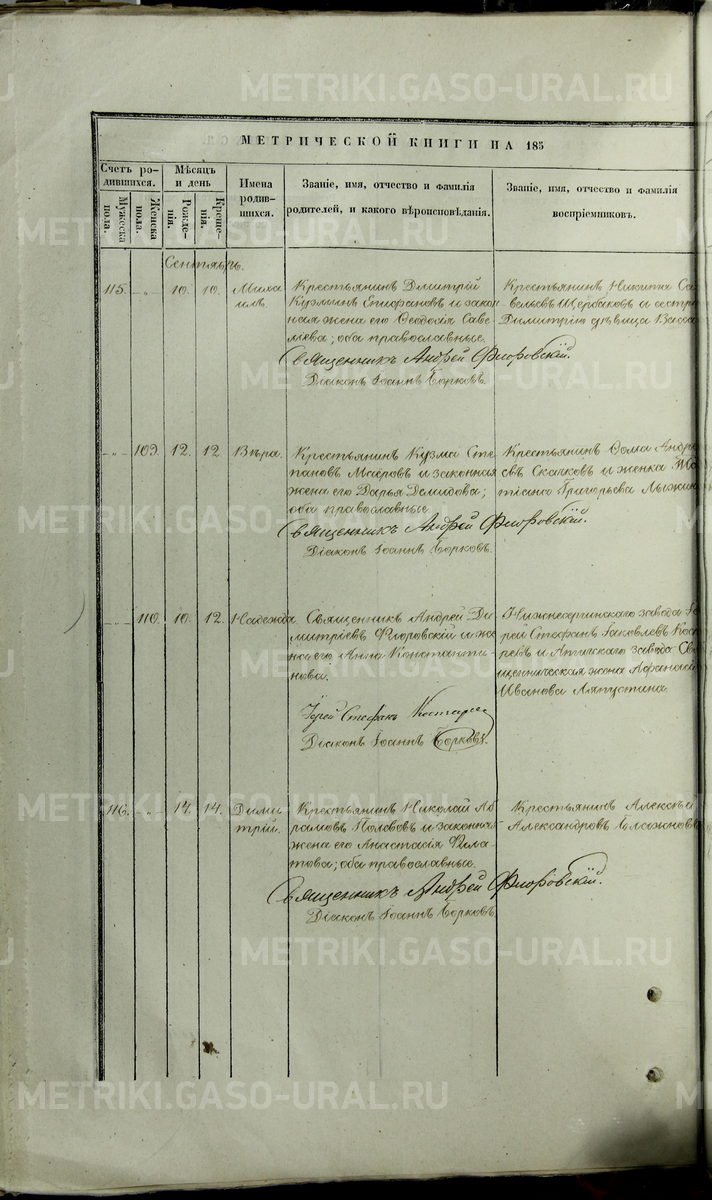 METRIKI.GASO-URAL.RU
МЕТРИЧЕСКОЙ КНИГИ НА 185
Счетъ ро-
дившихся.
Мужеска
пола.
Женска
пола.
Мѣсяцъ
и день
Рожде-
нія.
Креще-
нія.
Имена
родив-
шихся.
Званіе, имя, отчество и фамилія
родителей, и какого вѣроисповѣданія.
Званіе, имя, отчество и фамилія
воспріемниковъ.
Сентябрь.
115. „ 10. 10. Миха
илъ.
Крестьянинъ Димитрій
Кузминъ Епифановъ и закон
ная жена его Ѳеодосія Саве
льева; оба православные.
Священникъ Андрей Флоровскій.
Діаконъ Іоаннъ Борковъ.
Крестьянинъ Никита Са
вельевъ Щербаковъ и сестра
Димитрію дѣвица Васса
„ 109. 12. 12. Вѣра.
Крестьянинъ Кузма Сте
пановъ Маёровъ и законная
жена его Дарья Демидова;
оба православные
Священникъ Андрей Флоровскій.
Діаконъ Іоаннъ Борковъ.
Крестьянинъ Ѳома Андре
евъ Скачковъ и женка Та
тіана Григорьева
110. 10. 12. Надежда.
Священникъ Андрей Ди
митріевъ Флоровскій и же
на его Анна Константи
нова.
Іерей Стефанъ Костарев
Діаконъ Іоаннъ Борковъ.
Нижнесергинскаго завода Іе
рей Стефанъ Іаковлевъ Кос
ревъ и Атигскаго завода Свя
щенническая жена Афанасія
Иванова Ляпустина.
116. „ 14. 14. Дими
трій.
Крестьянинъ Николай Аб
рамовъ Полевовъ и законная
жена его Анастасія Фила
това; оба православные.
Священникъ Андрей Флоровскій.
Діаконъ Іоаннъ Борковъ
Крестьянинъ Алексѣй
Александровъ